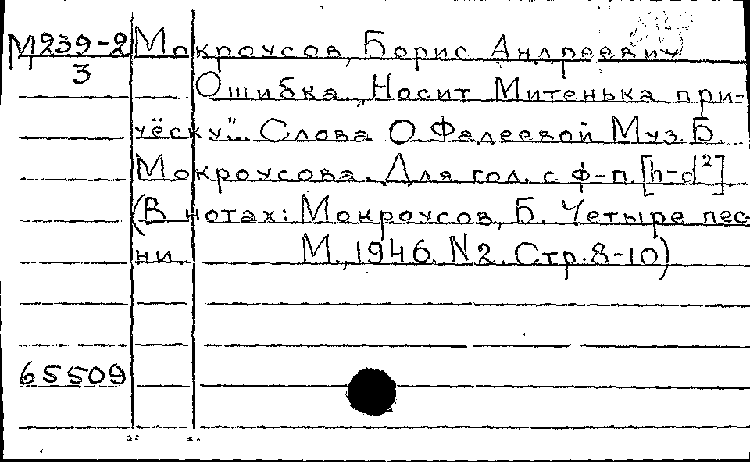 М239-2 Мокроусов, Борис Андреевич
3 Ошибка. „Носит Митенька при-
чёску". Слова О Фадеевой Муз. Б.
Мокроусова. Для гол. с ф-п. [h-d²]
(В нотах: Мокроусов, Б. Четыре пес-
ни. М., 1946. N2. Стр. 8-10)
65509